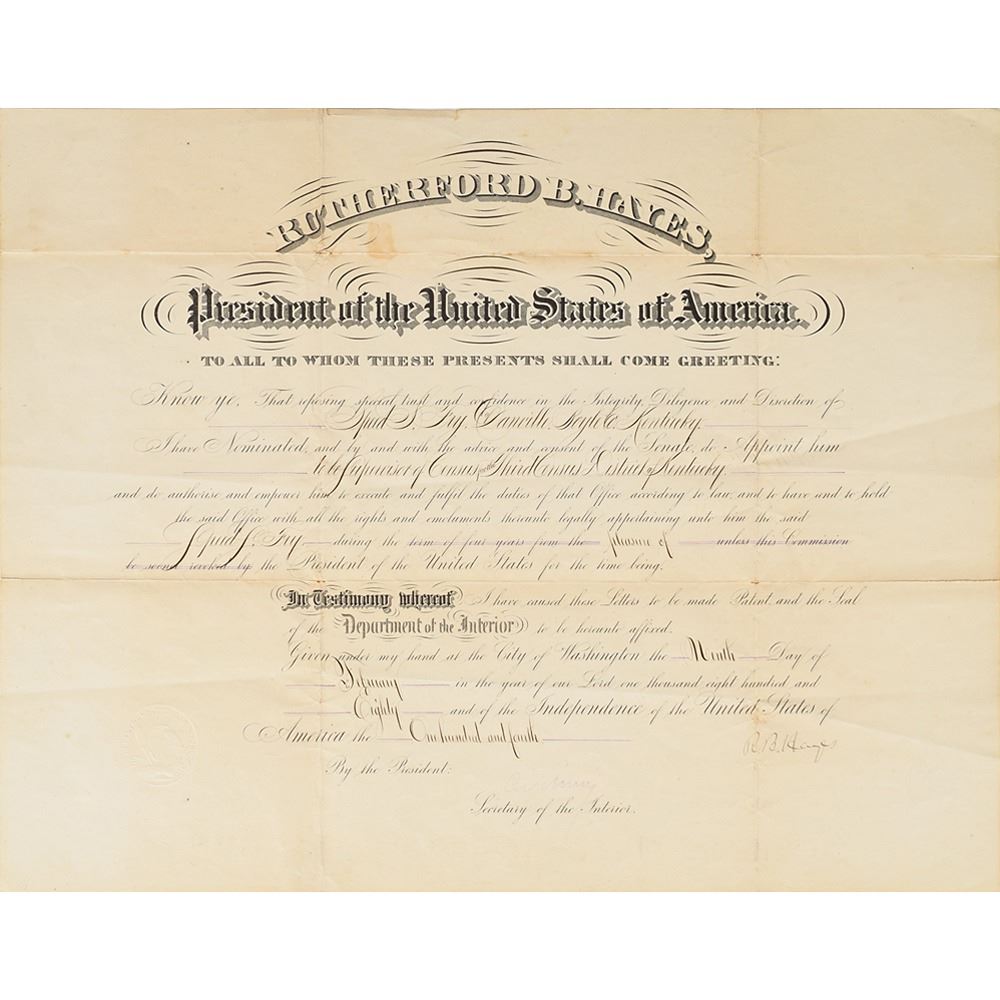 RUTHERFORD B. HAYES,
President of the United States of America.
TO ALL TO WHOM THESE PRESENTS SHALL COME GREETING:
Know ye, That reposing special trust and confidence in the Integrity, Diligence and Discretion of
Speed S. Fry, Danville, Boyle Co. Kentucky
I have Nominated, and by and with the advice and consent of the Senate, do Appoint him
to be Supervisor of Census, for the Third Census District of Kentucky.
and do authorise and empower him to execute and fulfil the duties of that Office according to law, and to have and to hold
the said Office with all the rights and emoluments thereunto legally appertaining unto him the said
Speed S. Fry during the term of four years from the pleasure of unless this Commission
be sooner revoked by the President of the United States for the time being.
In Testimony whereof I have caused these Letters to be made Patent, and the Seal
of the Department of the Interior to be hereunto affixed.
Given under my hand at the City of Washington the Ninth Day of
February in the year of our Lord one thousand eight hundred and
Eighty and of the Independence of the United States of
America the One hundred and fourth
R. B. Hayes
By the President:
Secretary of the Interior.